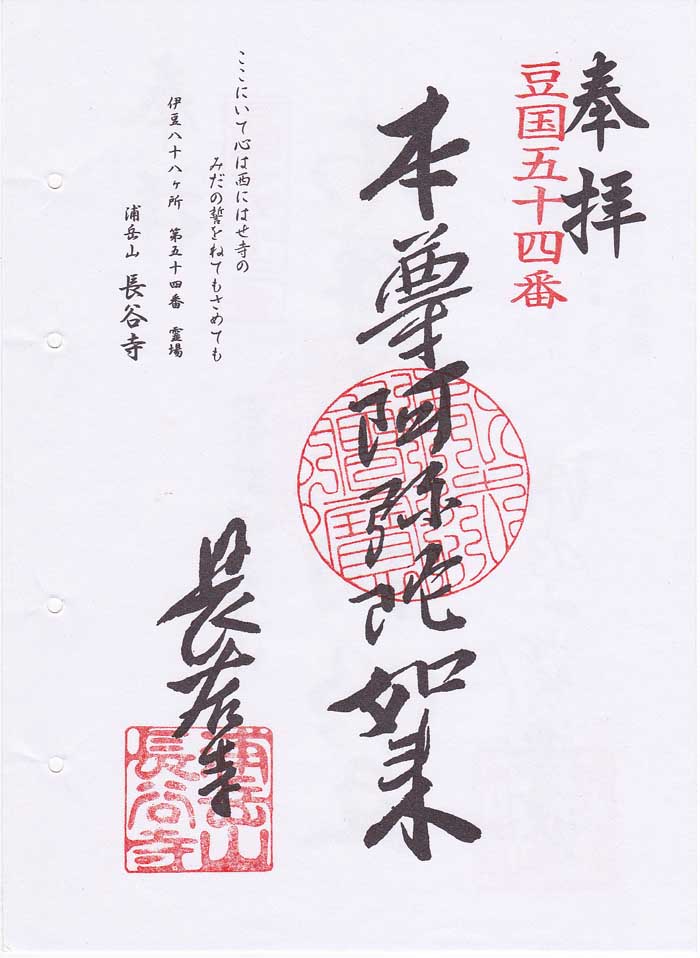 奉拝
豆国五十四番
本尊阿弥陀如来
長谷寺
浦岳山
長谷寺
ここにいて心は西にはせ寺の
みだの誓をねてもさめても
伊豆八十八ヶ所 第五十四番 霊場
浦岳山 長谷寺